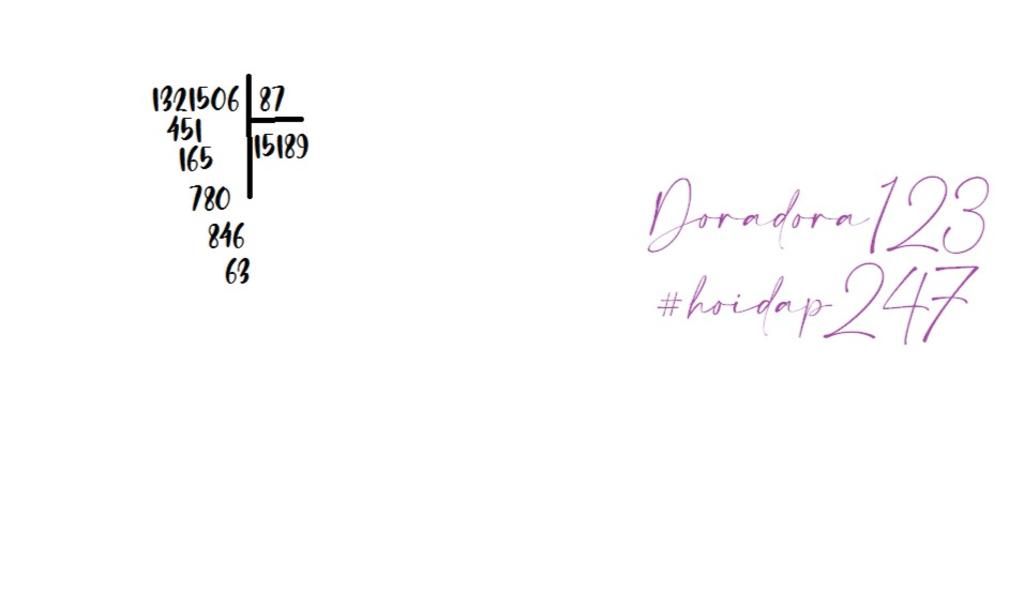 1321506 87
451 15189
165
780
846
63
Doradora123
#hoidap247